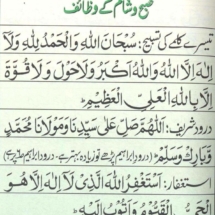 صبح و شام کے وظائف
تیسرے کلمے کی تسبیح: سُبْحَانَ اللهِ وَالْحَمْدُ لِلّٰهِ وَلَآ
اِلٰهَ اِلَّا اللهُ وَاللهُ اَكْبَرُ وَلَا حَوْلَ وَلَا قُوَّةَ
اِلَّا بِاللهِ الْعَلِيِّ الْعَظِيْمِ
درود شریف: اَللّٰهُمَّ صَلِّ عَلٰى سَيِّدِنَا وَمَوْلَانَا مُحَمَّدٍ
وَبَارِكْ وَسَلِّمْ (درود ابراہیم پڑھے تو زیادہ بہتر ہے۔
استغفار: اَسْتَغْفِرُ اللهَ الَّذِىْ لَآ اِلٰهَ اِلَّا هُوَ
الْحَيُّ الْقَيُّوْمُ وَاَتُوْبُ اِلَيْهِ